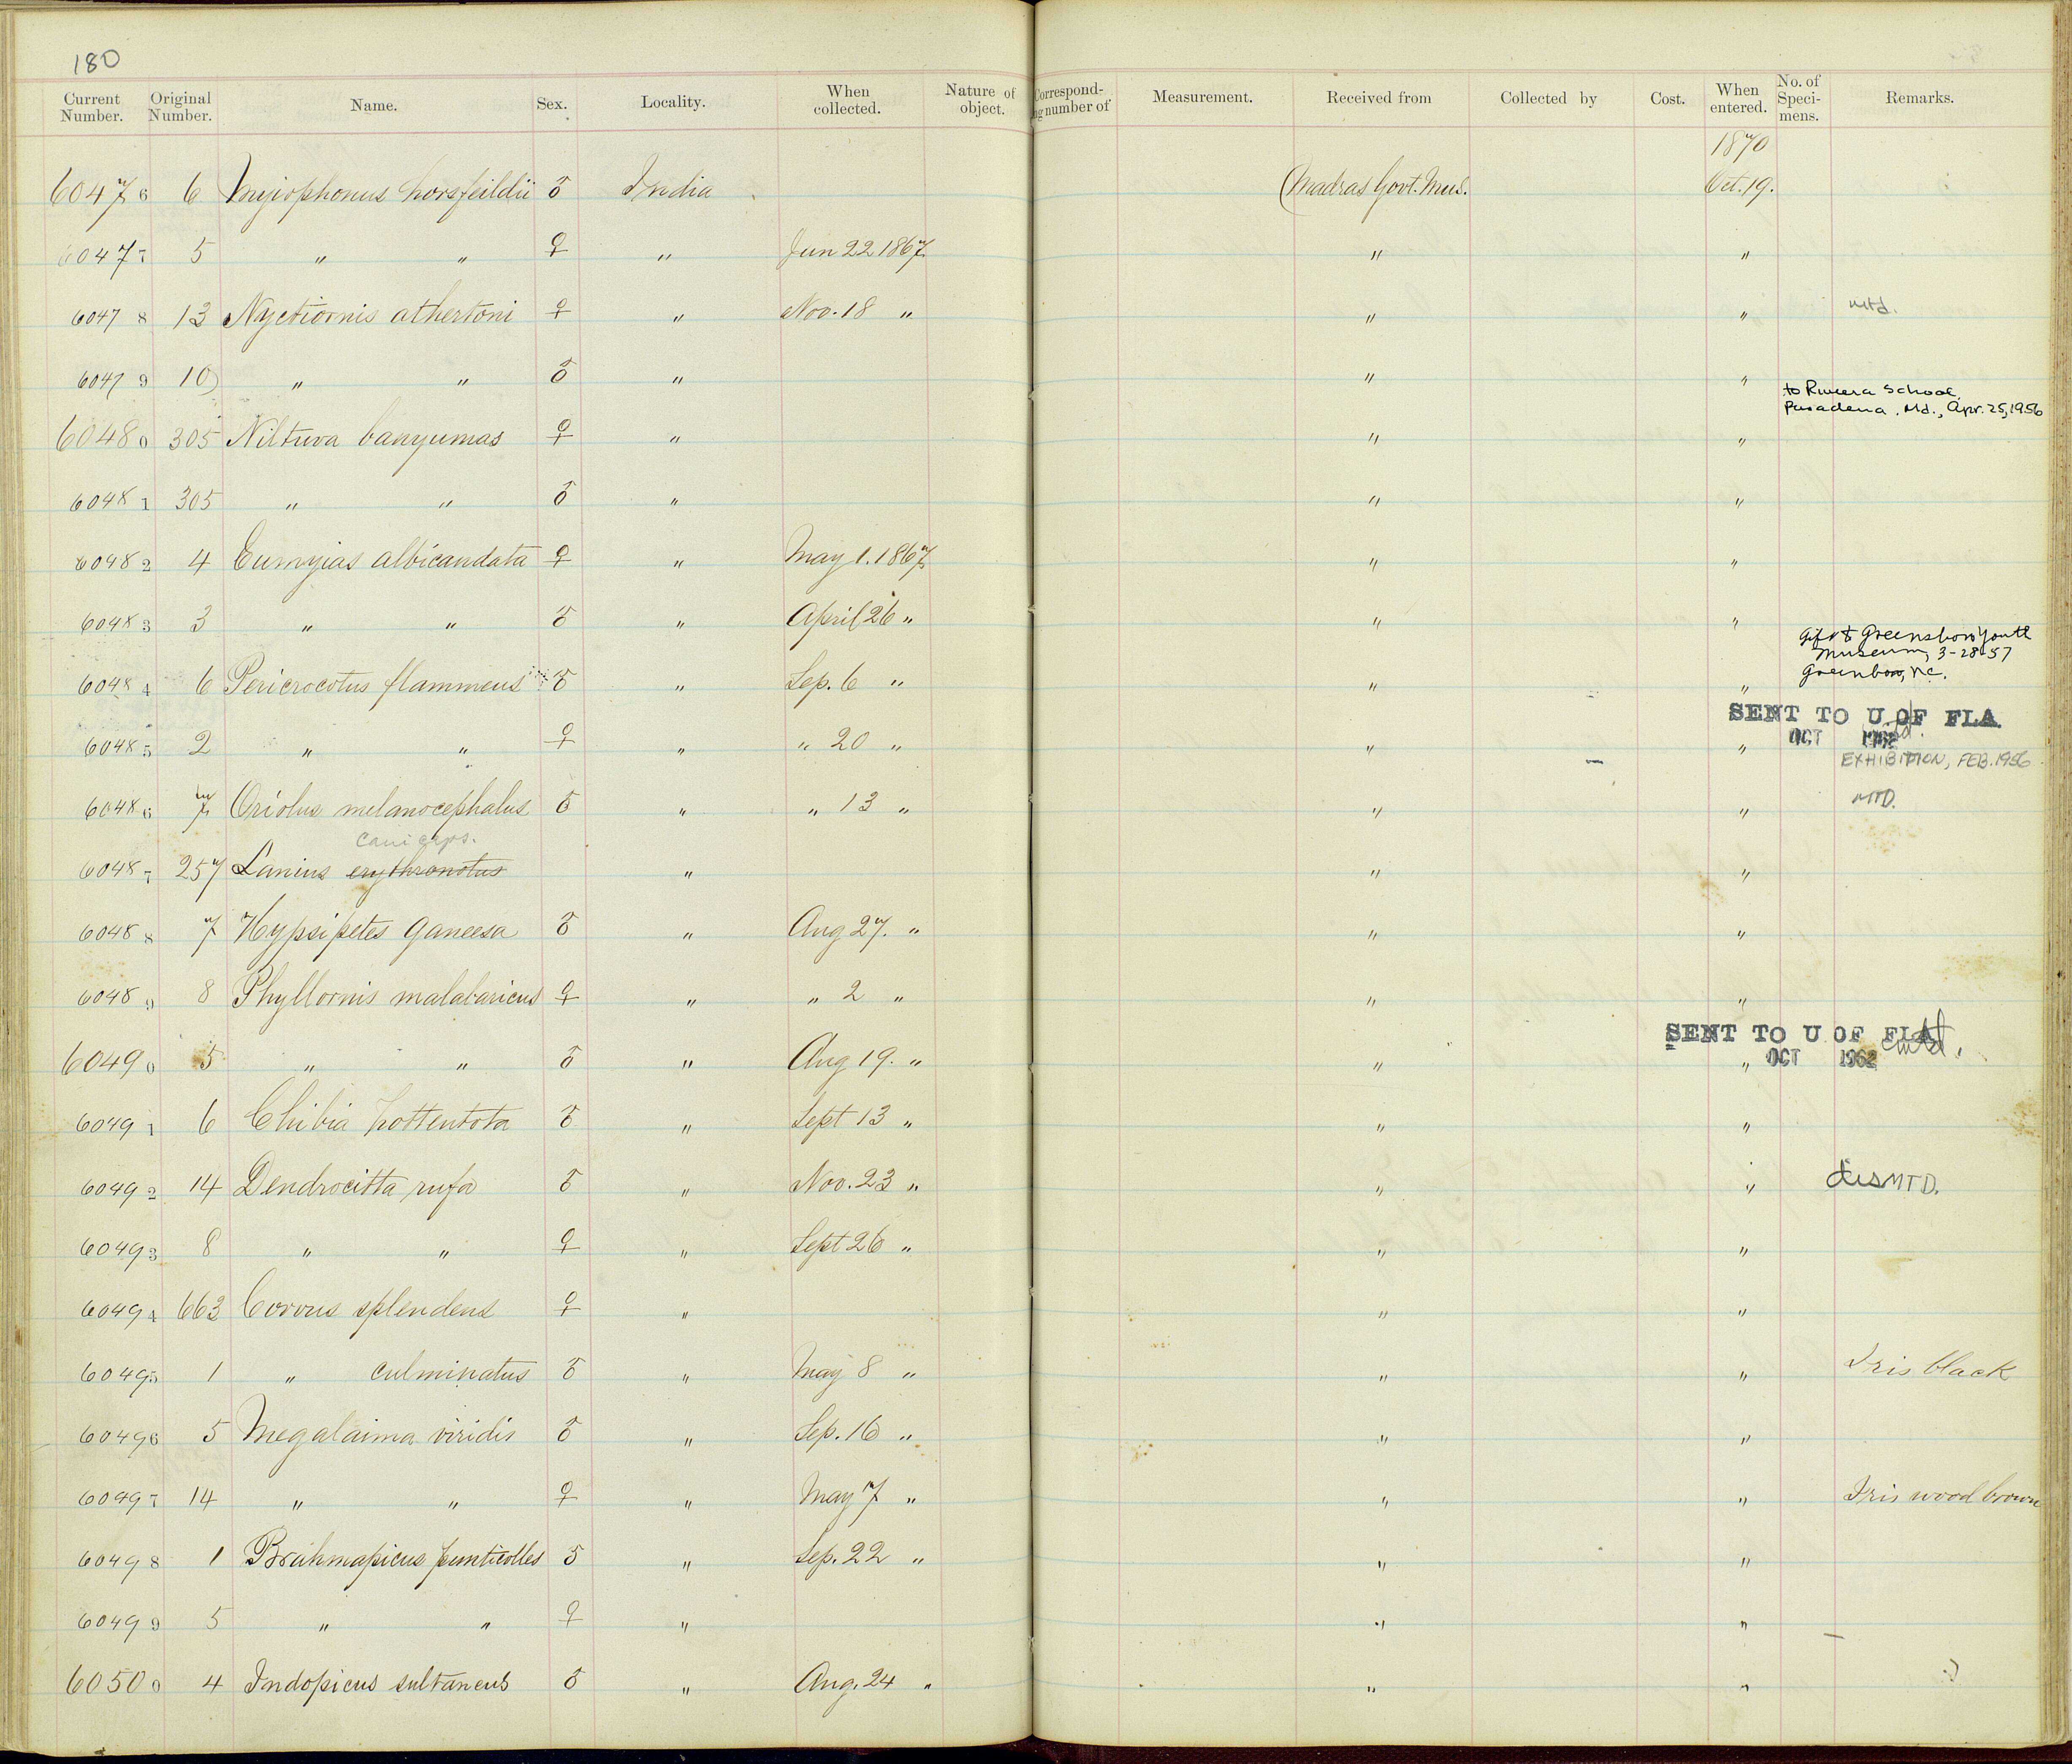 180
Current Number. Original Number. Name. Sex. Locality. When collected. Nature of object. Correspond- ing number of Measurement. Received from Collected by Cost. When entered. No. of Speci- mens. Remarks.
1870
60476 6 Myiophonus horsfeildii ♂ India Madras Govt. Mus. Oct. 19.
60477 5 " " ♀ " Jun 22 1867 " "
60478 13 Nyctiornis athertoni ♀ " Nov. 18 " " " Mtd.
60479 10 " " ♂ " " "
to Riviera School, Pasadena, Md., Apr. 25, 1956
60480 305 Niltava banyumas ♀ " " "
60481 305 " " ♂ " " "
60482 4 Eumyias albicaudata ♀ " May 1. 1867 " "
60483 3 " " ♂ " April 26 " " "
Gift to Greensboro Youth Museum, 3-28-57 Greenboro, N.C.
60484 6 Pericrocotus flammeus ♂ " Sep. 6 " " "
SENT TO U OF FLA
OCT 1962
60485 2 " " ♀ " " 20 " " " EXHIBITION, FEB. 1956
60486 7 Oriolus melanocephalus ♂ " " 13 " " " MTD.
caniceps.
60487 257 Lanius erythronotus " " "
60488 7 Hypsipetes ganeesa ♂ " Aug 27. " " "
60489 8 Phyllornis malabaricus ♀ " " 2 " " "
SENT TO U OF FLA
OCT 1962
60490 5 " " ♂ " Aug 19. " " "
60491 6 Chibia hottentota ♂ " Sept 13 " " "
60492 14 Dendrocitta rufa ♂ " Nov. 23 " " " disMTD.
60493 8 " " ♀ " Sept 26 " " "
60494 663 Corvus splendens ♀ " " "
60495 1 " culminatus ♂ " May 8 " " " Iris black
60496 5 Megalaima viridis ♂ " Sep. 16 " " "
60497 14 " " ♀ " May 7 " " " Iris wood brown
60498 1 Brahmapicus puncticolles ♂ " Sep. 22 " " "
60499 5 " " ♀ " " "
60500 4 Indopicus sultaneus ♂ " Aug. 24 " " "